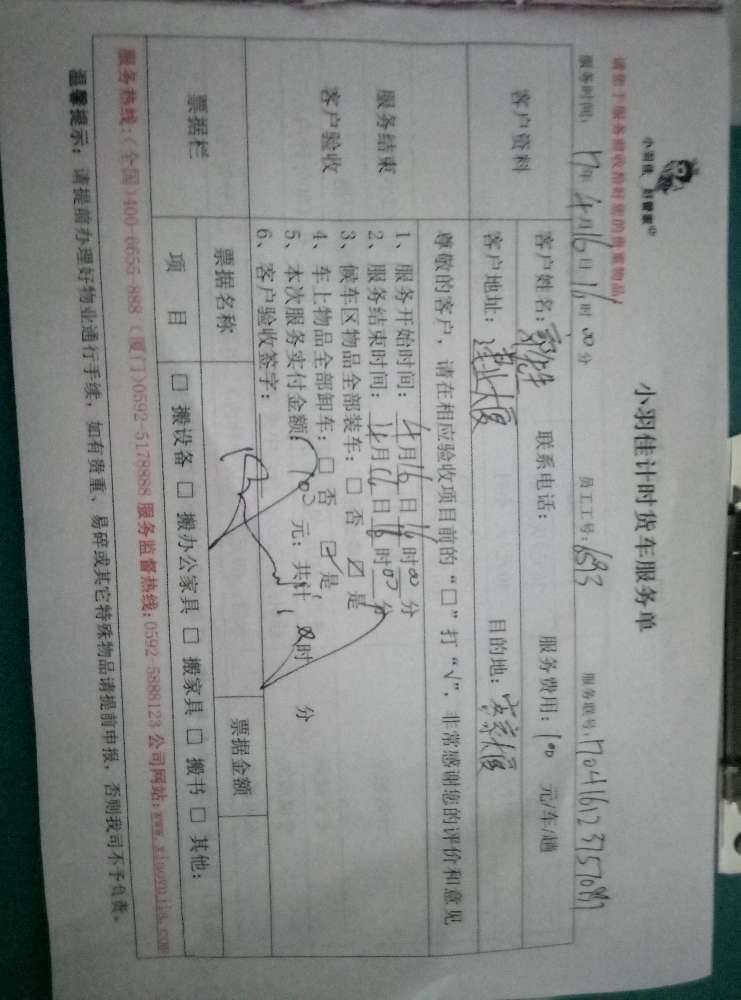 小羽佳 好管家
小羽佳计时货车服务单
请您于服务前收拾好您的贵重物品!
服务时间: 17年 4月16日 16时 00分 员工工号: 1693 服务联号:
客户资料
客户姓名: 联系电话: 服务费用: 100 元/车/趟
客户地址: 大厦 目的地: 大厦
服务结束
客户验收
尊敬的客户,请在相应验收项目前的“□”打“√”,非常感谢您的评价和意见
1、服务开始时间: 4月16日 16时00分
2、服务结束时间: 4月16日 时00分
3、候车区物品全部装车: □ 否 ☑ 是
4、车上物品全部卸车: □ 否 ☑ 是
5、本次服务实付金额: 元; 共计 时 分
6、客户验收签字:
票据栏
票据名称 票据金额
项 目 □ 搬设备 □ 搬办公家具 □ 搬家具 □ 搬书 □ 其他:
服务热线:(全国)400-6655-888 (厦门)0592-5178888 服务监督热线:0592-5888123 公司网站:www.xiaoyujia.com
温馨提示: 请提前办理好物业通行手续,如有贵重、易碎或其它特殊物品请提前申报,否则我司不予负责。